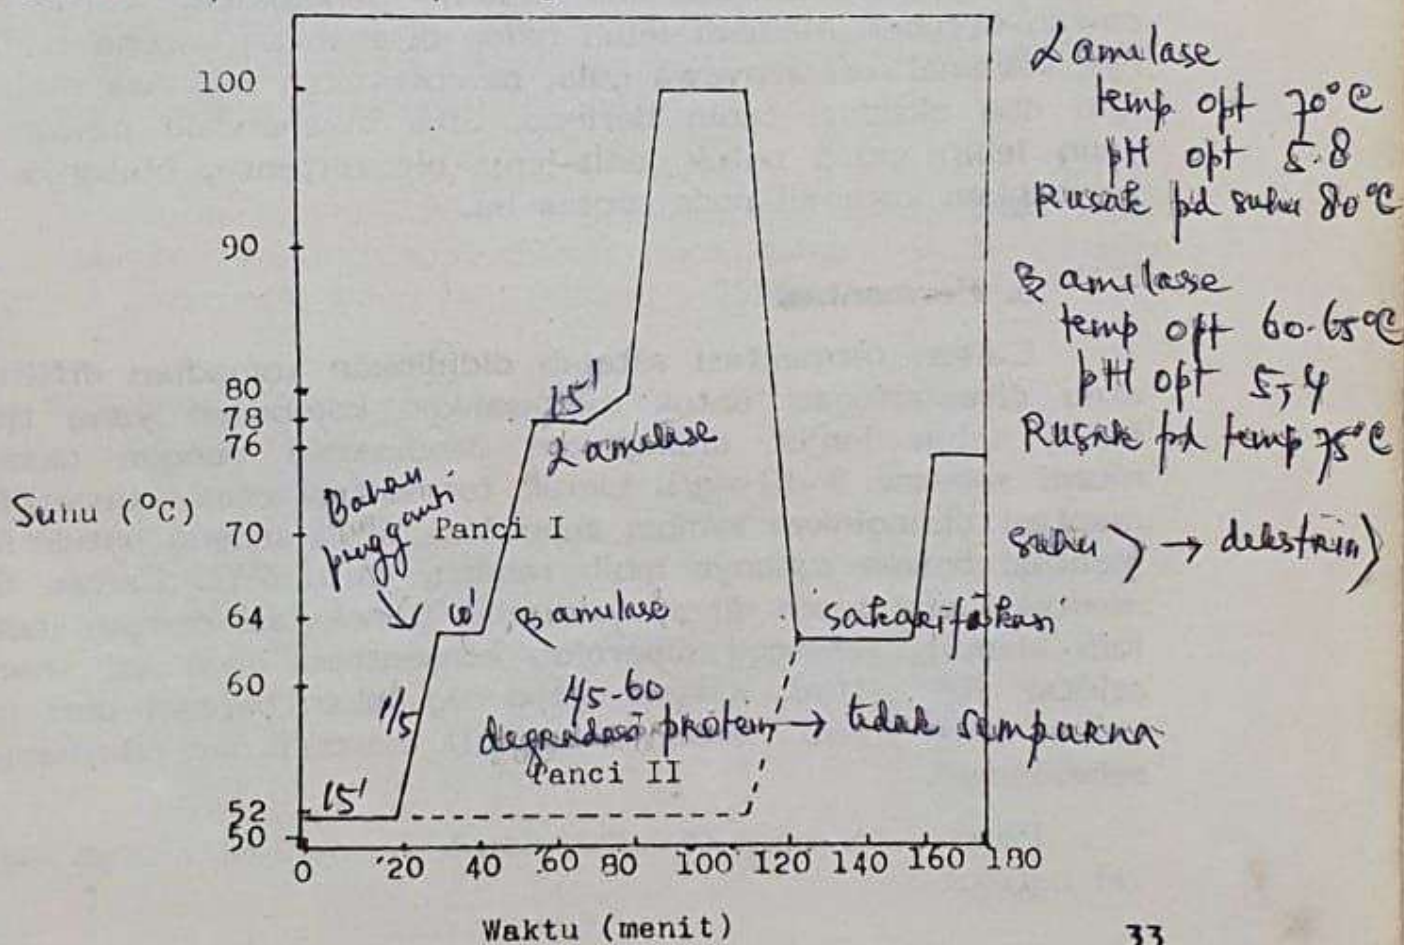 100
90
80
78
76
70
64
60
52
50
Suhu (°C)
0 20 40 60 80 100 120 140 160 180
Waktu (menit)
33
Panci I
Panci II
Bahan
pengganti
15'
1/5
10'
β amilase
15'
α amilase
45-60
degradasi protein → tidak sempurna
sakarifikasi
α amilase
temp opt 70°C
pH opt 5.8
Rusak pd suhu 80°C
β amilase
temp opt 60-65°C
pH opt 5,4
Rusak pd temp 75°C
suhu > → dekstrin >